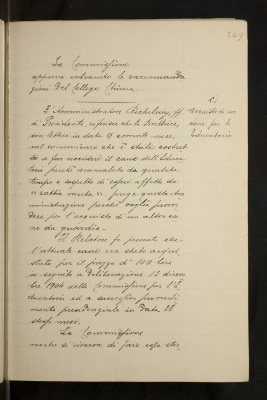 249
La Commissione
approva entrambe le raccomanda
zioni del Collega Chinea.
L'Amministratore ff.
di Presidente, riferisce che la Direttrice,
con lettera in data 9 corrente mese,
nel comunicare che è stata costret
ta a far uccidere il cane dell'Educa
torio perchè ammalato da qualche
tempo e sospetto di essere affetto da
prega questa Am
ministrazione perchè voglia provve
dere per l'acquisto di un altro ca
ne da guardia.
Il Relatore fa presente che
l'attuale cane era stato acqui
stato per il prezzo di 100 lire
in seguito a deliberazione 13 dicem
bre 1904 della Commissione per l'E
ducatorio ed a successivo provvedi
mento presidenziale in data 28
stesso mese.
La Commissione
mentre si riserva di fare cosa
c)
Acquisto di un
cane per lo
Educatorio